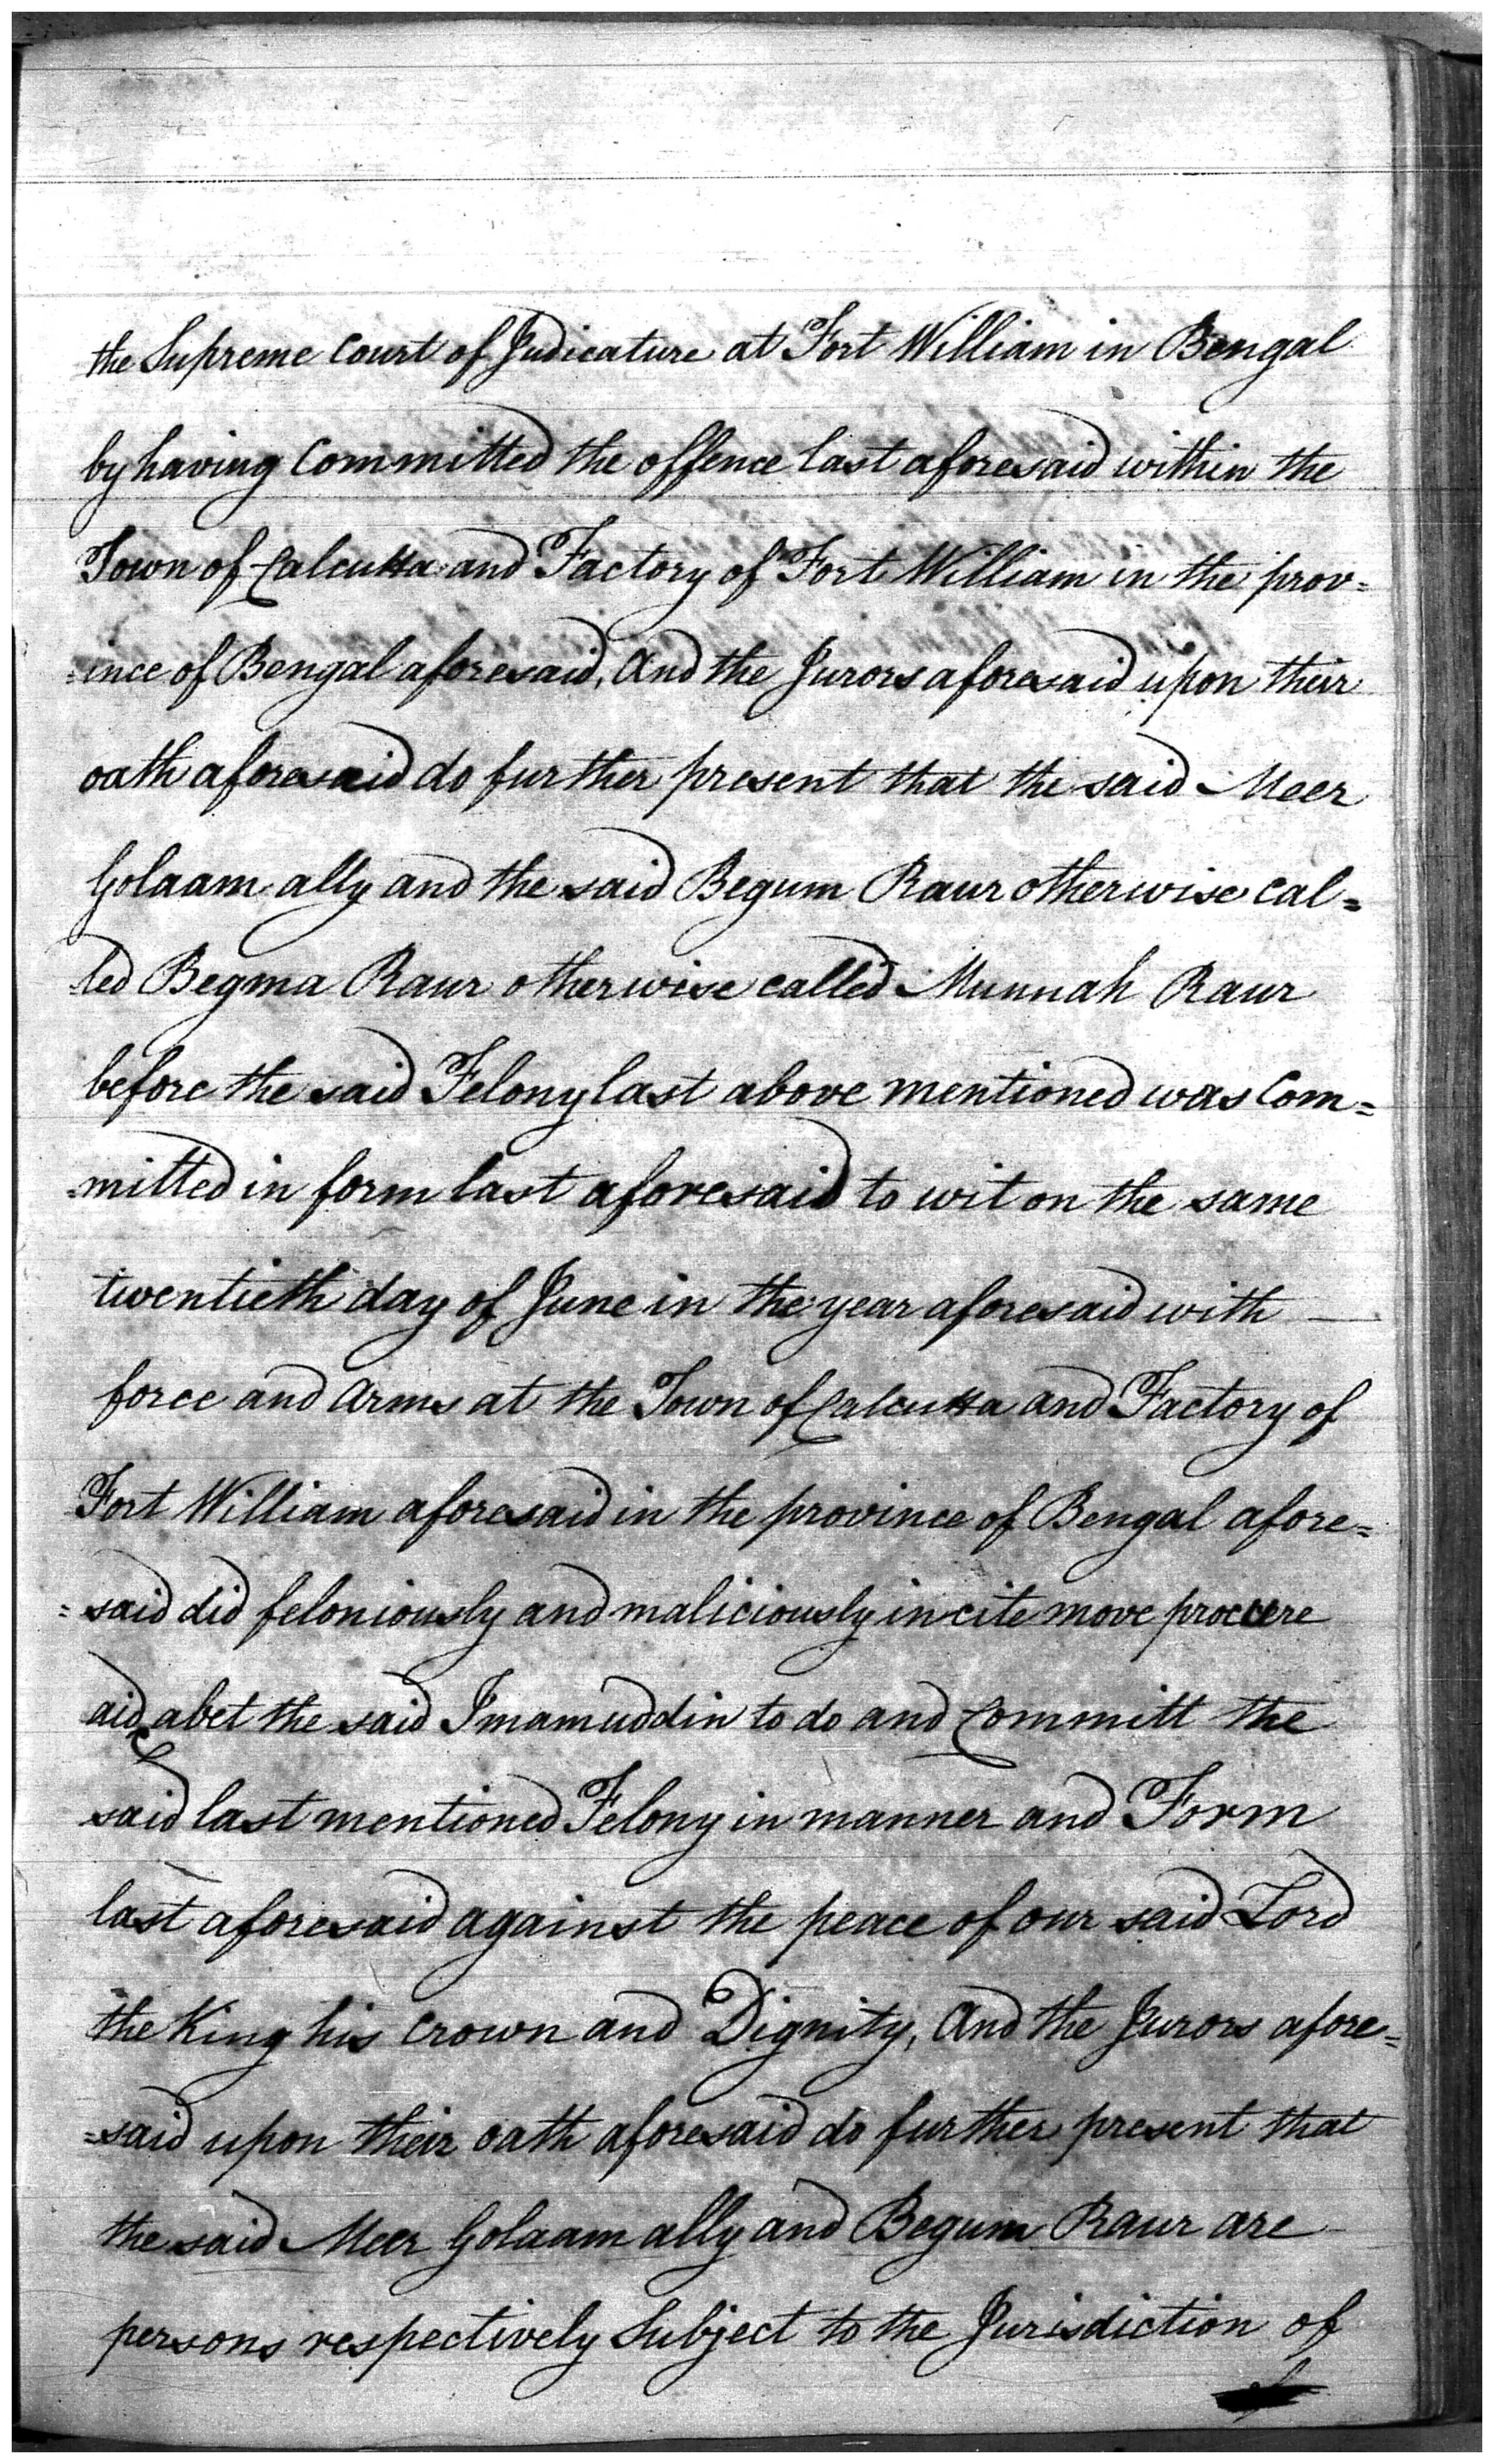 the Supreme Court of Judicature at Fort William in Bengal
by having Committed the offence last aforesaid within the
Town of Calcutta and Factory of Fort William in the prov=
=ince of Bengal aforesaid, And the Jurors aforesaid upon their
oath aforesaid do further present that the said Meer
Golaam ally and the said Begum Raur otherwise cal=
led Begma Raur otherwise called Munnah Raur
before the said Felony last above mentioned was Com=
=mitted in form last aforesaid to wit on the same
twentieth day of June in the year aforesaid with
force and Arms at the Town of Calcutta and Factory of
Fort William aforesaid in the province of Bengal afore=
=said did feloniously and maliciously incite move procure
aid abet the said Imamuddin to do and Committ the
said last mentioned Felony in manner and Form
last aforesaid against the peace of our said Lord
the King his Crown and Dignity, And the Jurors afore=
=said upon their oath aforesaid do further present that
the said Meer Golaam ally and Begum Raur are
persons respectively Subject to the Jurisdiction of